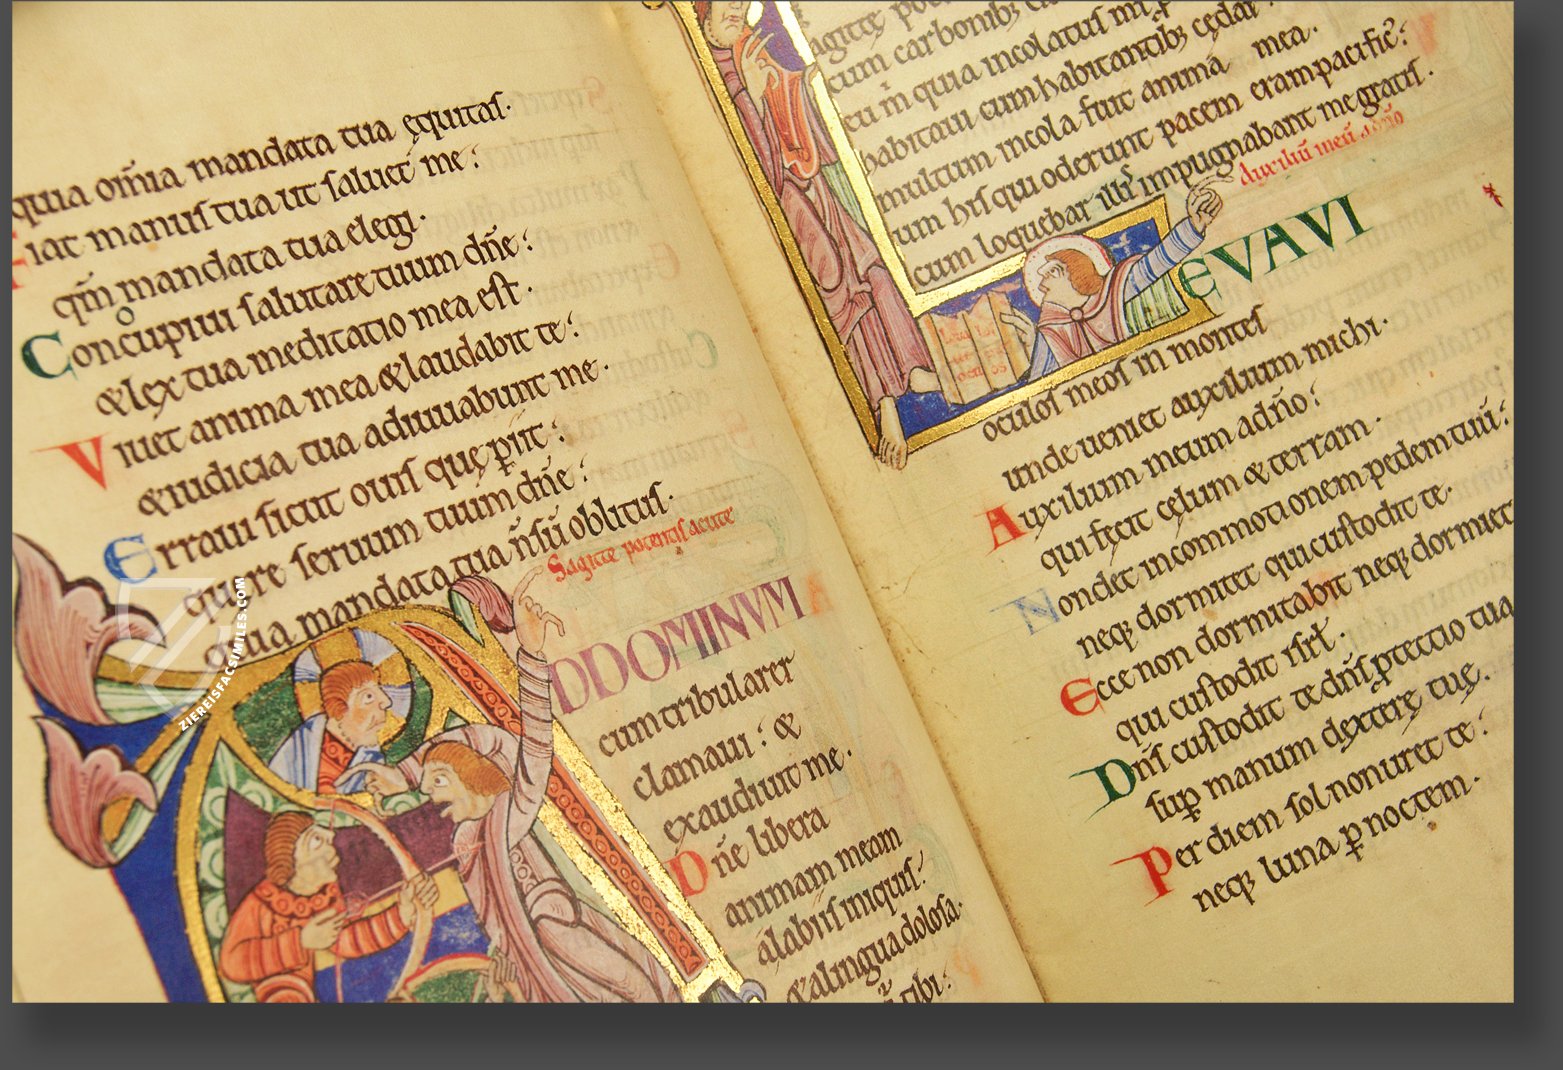 quia om̄ia mandata tua ęquitaſ·
Fiat manuſ tua ut ſaluet me:
qm̄ mandata tua elegi·
Concupiui ſalutare tuum dn̄e:
& lex tua meditatio mea eſt·
Viuet anima mea & laudabit te:
& iudicia tua adiuuabunt me·
Erraui ſicut ouiſ que ꝑiit:
quere ſeruum tuum dn̄e:
quia mandata tua n̄ ſū oblituſ·
Sagitte potentiſ acute
AD DOMINVM
cum tribularer
clamaui: &
exaudiuit me·
Dn̄e libera
animam meam
a labiiſ iniquiſ:
& a lingua doloſa·
tibi:
ZIEREISFACSIMILES.COM
agittę
cum carbonibꝫ
eu m̄ quia incolatuſ
habitaui cum habitantibꝫ cędar·
multum incola fuit anima mea·
um hiſ qui oderunt pacem eram pacific̄:
cum loquebar illiſ impugnabant me gratiſ·
Auxiliū meū a dn̄o
LEVAVI
oculoſ meoſ in monteſ
unde ueniet auxilium michi·
Auxilium meum a dn̄o:
qui fęcit cęlum & terram·
Non det in commotionem pedem tuū:
neqꝫ dormitet qui cuſtodit te·
Ecce non dormitabit neqꝫ dormiet
qui cuſtodit iſrł·
Dn̄ſ cuſtodit te dn̄ſ ꝓtectio tua
ſuꝑ manum dexterę tuę·
Per diem ſol non uret te:
neqꝫ luna ꝑ noctem·